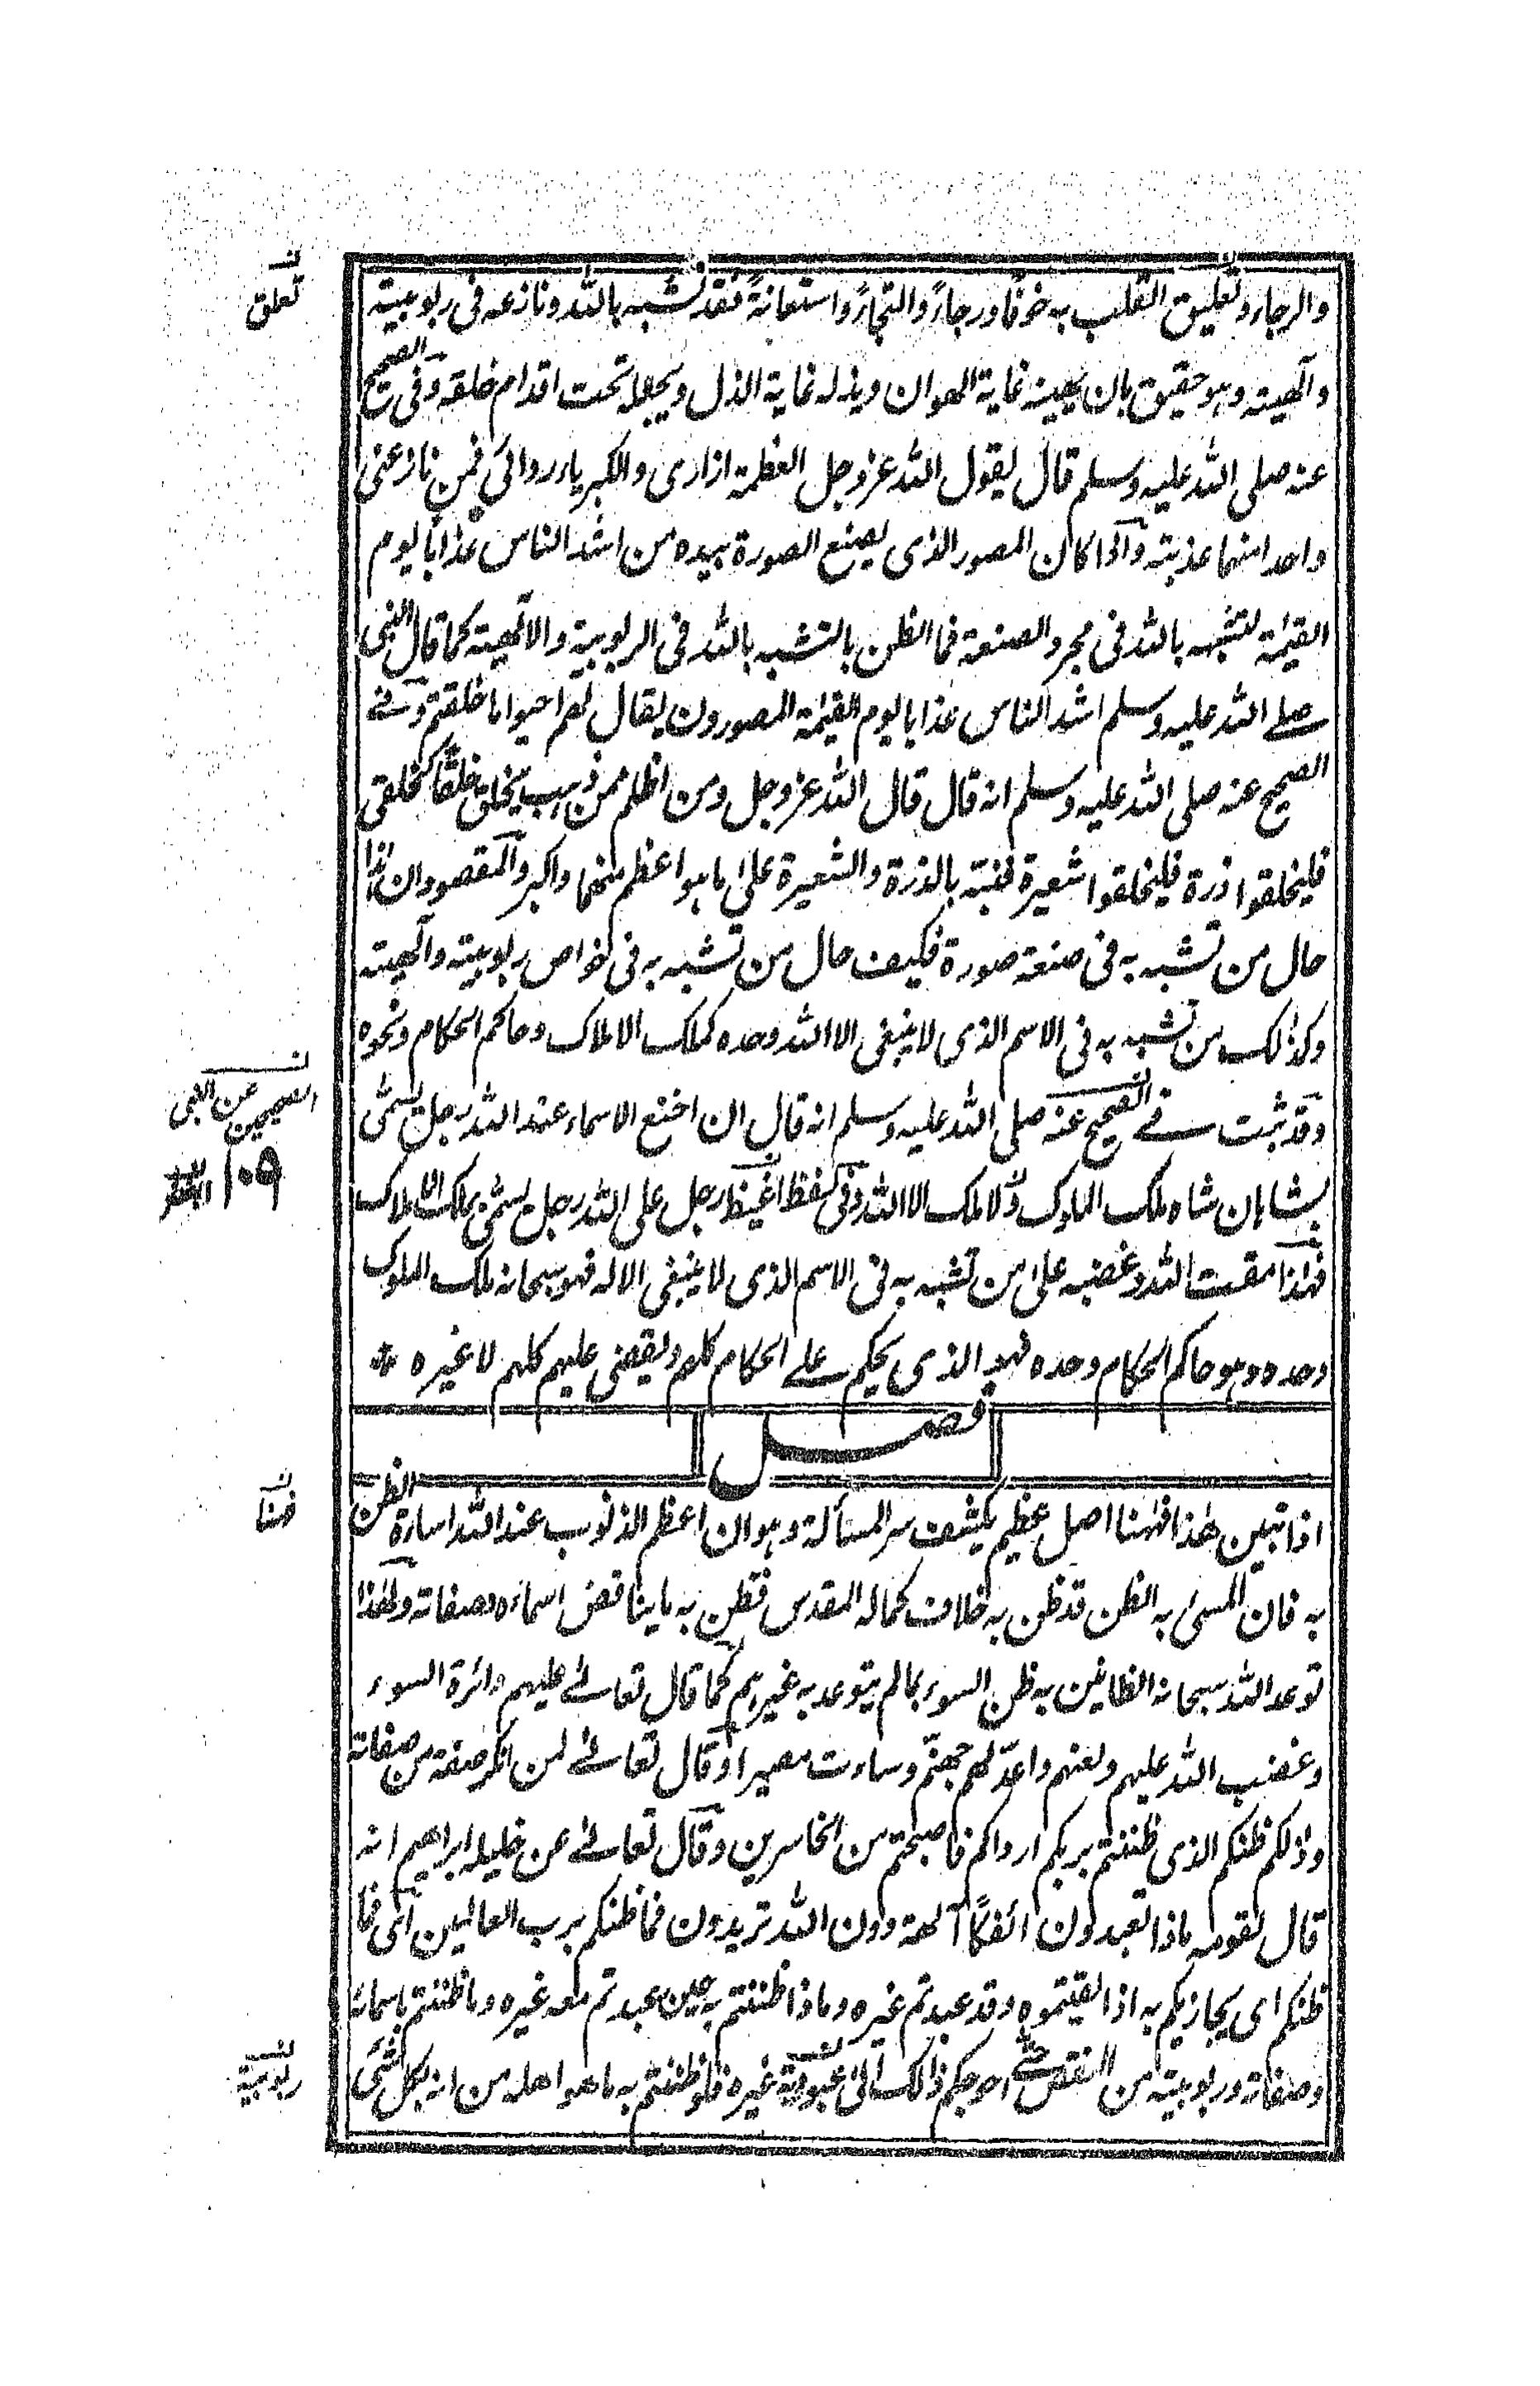 والرجاء وتعليق القلب به خوفًا ورجاءً والتجاءً واستعانةً فقد تشبه بالله ونازعه فى ربوبيته
والٰهيته وهو حقيق بان يهينه غاية الهوان ويذله غاية الذل ويجعله تحت اقدام خلقه وفى الصحيح
عنه صلى الله عليه وسلم قال يقول الله عز وجل العظمة ازارى والكبرياء ردائى فمن نازعنى
واحدا منهما عذبته واذا كان المصور الذى يصنع الصورة بيده من اشد الناس عذابا يوم
القيٰمة لتشبهه بالله فى مجرد الصنعة فما الظن بالتشبه بالله فى الربوبية والالٰهية كما قال النبى
صلے الله عليه وسلم اشد الناس عذابا يوم القيٰمة المصورون يقال لهم احيوا ما خلقتم وفے
الصحيح عنه صلى الله عليه وسلم انه قال قال الله عز وجل ومن اظلم ممن ذهب يخلق خلقًا كخلقى
فليخلقوا ذرة فليخلقوا شعيرة فنبه بالذرة والشعيرة علىٰ ما هو اعظم منهما واكبر والمقصود ان هذا
حال من تشبه به فى صنعة صورة فكيف حال من تشبه به فى خواص ربوبيته والٰهيته
وكذٰلك من تشبه به فى الاسم الذى لا ينبغى الا الله وحده كملك الاملاك وحاكم الحكام ونحوه
وقد ثبت فے الصحيح عنه صلى الله عليه وسلم انه قال ان اخنع الاسماء عند الله رجل تسمّٰى
بشاهان شاه ملك الملوك ولا ملك الا الله وفى لفظ اغيظ رجل على الله رجل يسمّٰى بملك الاملاك
فهٰذا مقت الله وغضبه علىٰ من تشبه به فى الاسم الذى لا ينبغى الا له فهو سبحانه ملك الملوك
وحده وهو حاكم الحكام وحده فهو الذى يحكم علے الحكام كلهم ويقضى عليهم كلهم لا غيره
فصل
اذا تبين هٰذا فهٰهنا اصل عظيم يكشف سر المسألة وهو ان اعظم الذنوب عند الله اساءة الظن
به فان المسئ به الظن قد ظن به خلاف كماله المقدس فظن به ما يناقض اسماءه وصفاته ولهٰذا
توعد الله سبحانه الظانين به ظن السوء بما لم يتوعد به غيرهم كما قال تعالےٰ عليهم دائرة السوء
وغضب الله عليهم ولعنهم واعدّ لهم جهنّم وساءت مصيرا وقال تعالےٰ لمن انكر صفة من صفاته
وذلكم ظنكم الذى ظننتم بربكم ارداكم فاصبحتم من الخاسرين وقال تعالےٰ عن خليله ابراهيم انه
قال لقومه ماذا تعبدون ائفكًا آلهة دون الله تريدون فما ظنكم برب العالمين اى فما
ظنكم اى يجازيكم به اذا لقيتموه وقد عبدتم غيره وماذا ظننتم به حين عبدتم معه غيره وما ظننتم باسمائه
وصفاته وربوبيته من النقص حتےٰ احوجكم ذٰلك الىٰ عبودية غيره فلو ظننتم به ما هو اهله من انه بكل شئ
تعلق
الصحيحين عن النبى
١٠٩
فهنا
ربوبية